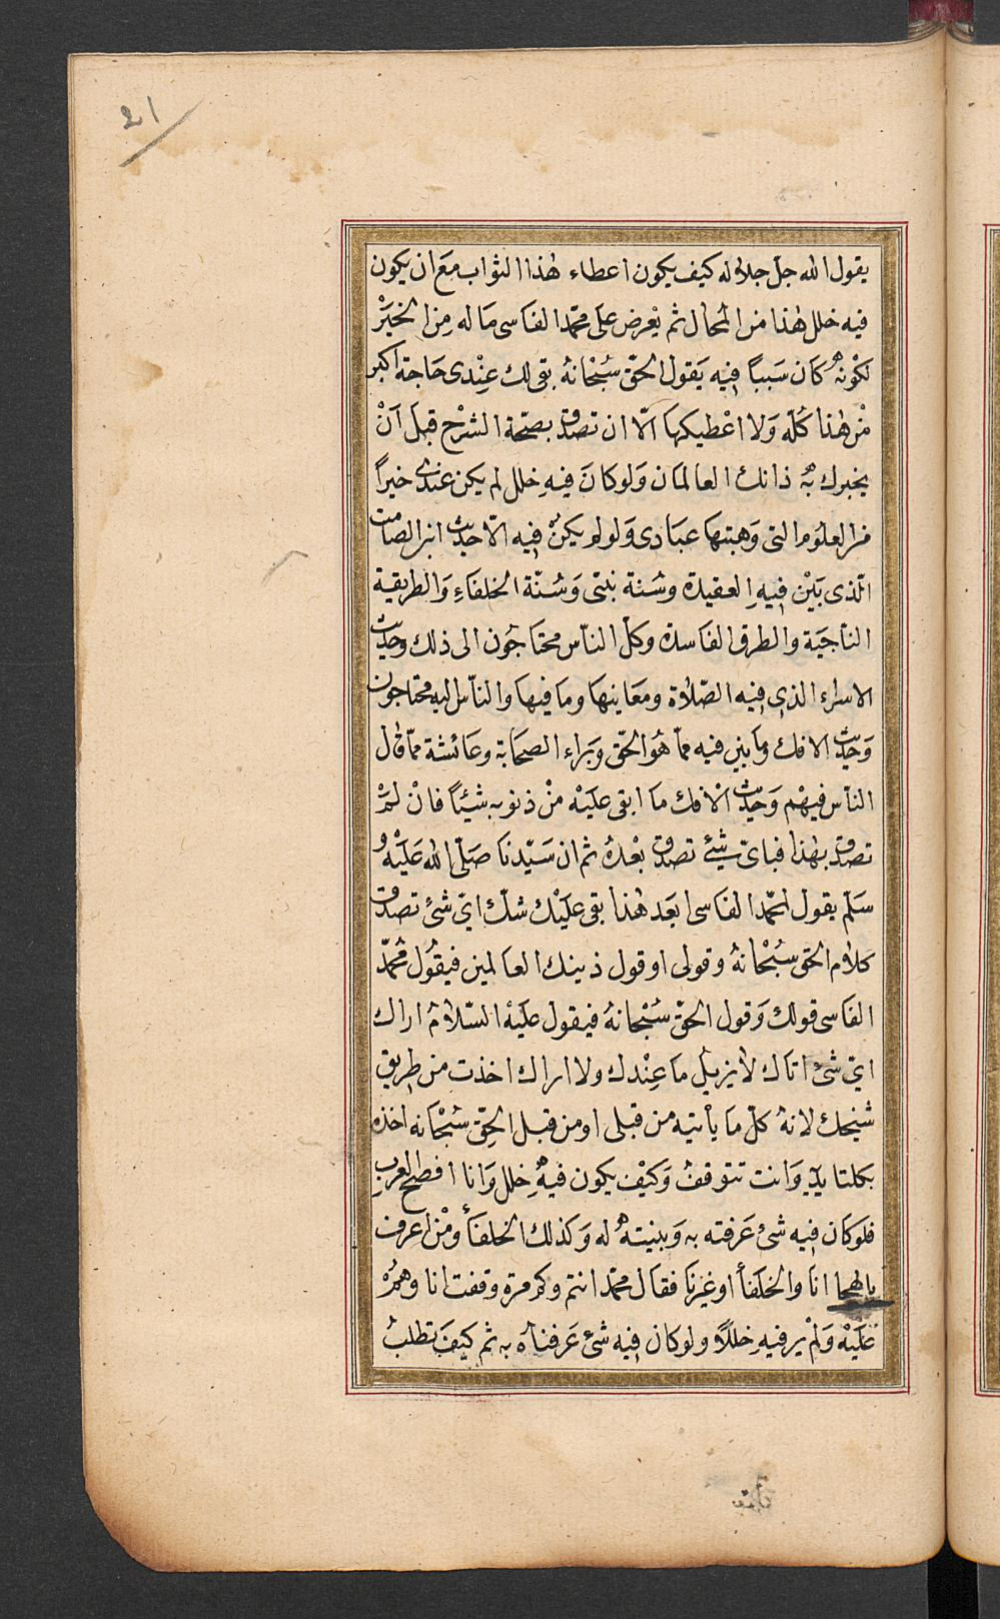 21
يقول الله جل جلاله كيف يكون اعطاء هذا الثواب مع ان يكون
فيه خلل هذا من المحال ثم يعرض على محمد الفاسى ما له من الخير
لكونه كان سببا فيه يقول الحق سبحانه بقى لك عندى حاجة اكبر
من هذا كله ولا اعطيكها الا ان تصدق بصحة الشرح قبل ان
يخبرك به ذانك العالمان ولو كان فيه خلل لم يكن عندى خيراً
من العلوم التى وهبتها عبادى ولو لم يكن فيه الا حديث ابن الصامت
الذى بين فيه العقيدة وسنة نبتى وسنة الخلفاء والطريقة
الناجية والطرق الفاسدة وكل الناس محتاجون الى ذلك وحديث
الاسراء الذى فيه الصلاة ومعاينها وما فيها والناس اليه محتاجون
وحديث الافك وما بين فيه مما هو الحق وبراء الصحابة وعائشة مما قال
الناس فيهم وحديث الافك ما ابقى عليه من ذنوبه شيئاً فان لم
تصدق بهذا فباى شئ تصدق بعده ثم ان سيدنا صلى الله عليه و
سلم يقول لمحمد الفاسى ابعد هذا بقى عليك شك اى شئ تصدق
كلام الحق سبحانه وقولى او قول ذينك العالمين فيقول محمد
الفاسى قولك وقول الحق سبحانه فيقول عليه السلام اراك
اى شئ اتاك لا يزيل ما عندك ولا اراك اخذت من طريق
شيخك لانه كل ما يأتيه من قبلى او من قبل الحق سبحانه اخذه
بكلتا يديه وانت تتوقف وكيف يكون فيه خلل وانا افصح العرب
فلو كان فيه شئ عرفته به وبينته له وكذلك الخلفأ ومن اعرف
بالهجا انا والخلفأ او غيرنا فقال محمد انتم وكم مرة وقفت انا وهم
عليه ولم ير فيه خللاً ولو كان فيه شئ عرفناه به ثم كيف تطلب